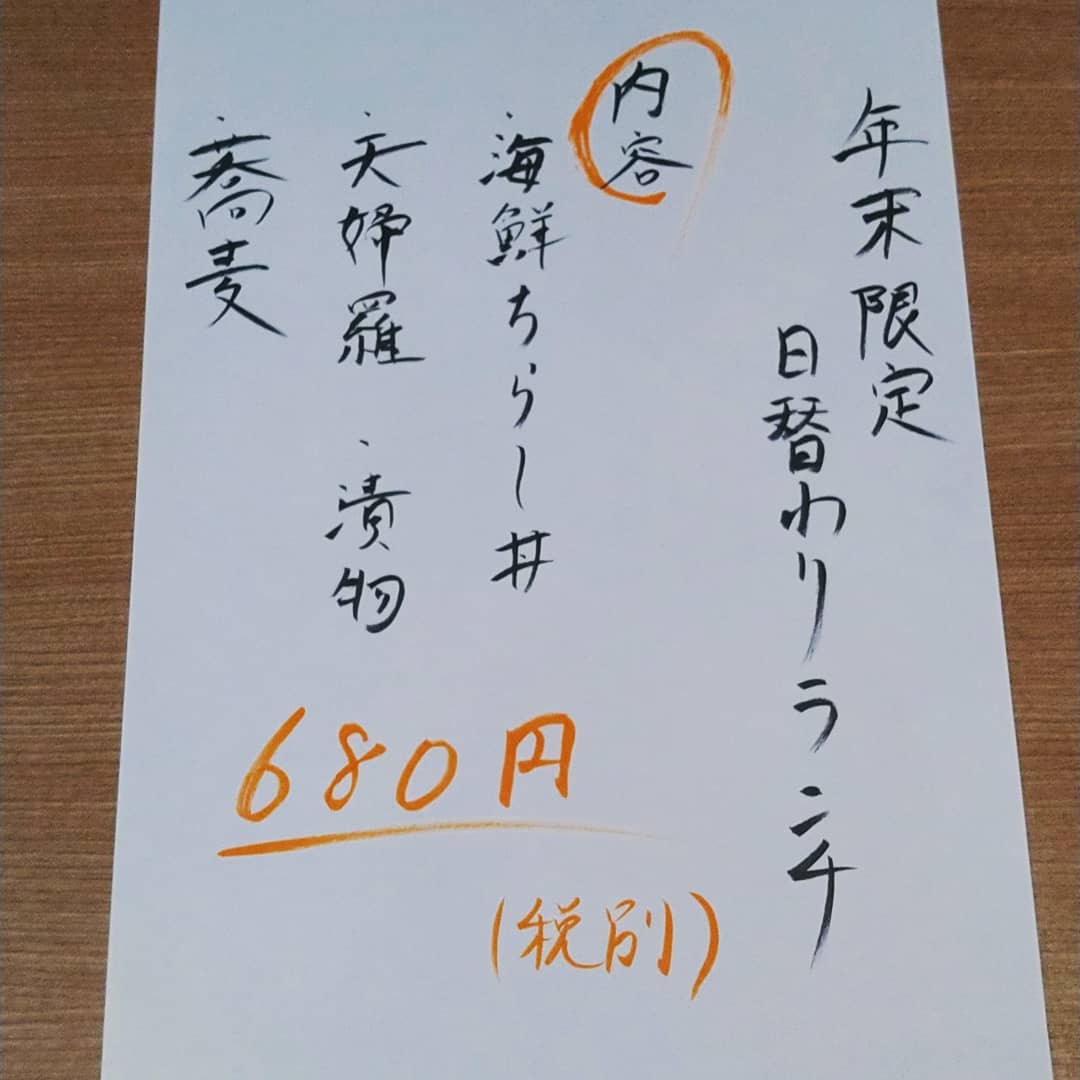 年末限定
日替わりランチ
内容
・海鮮ちらし丼
・天婦羅 ・漬物
・蕎麦
680円
(税別)